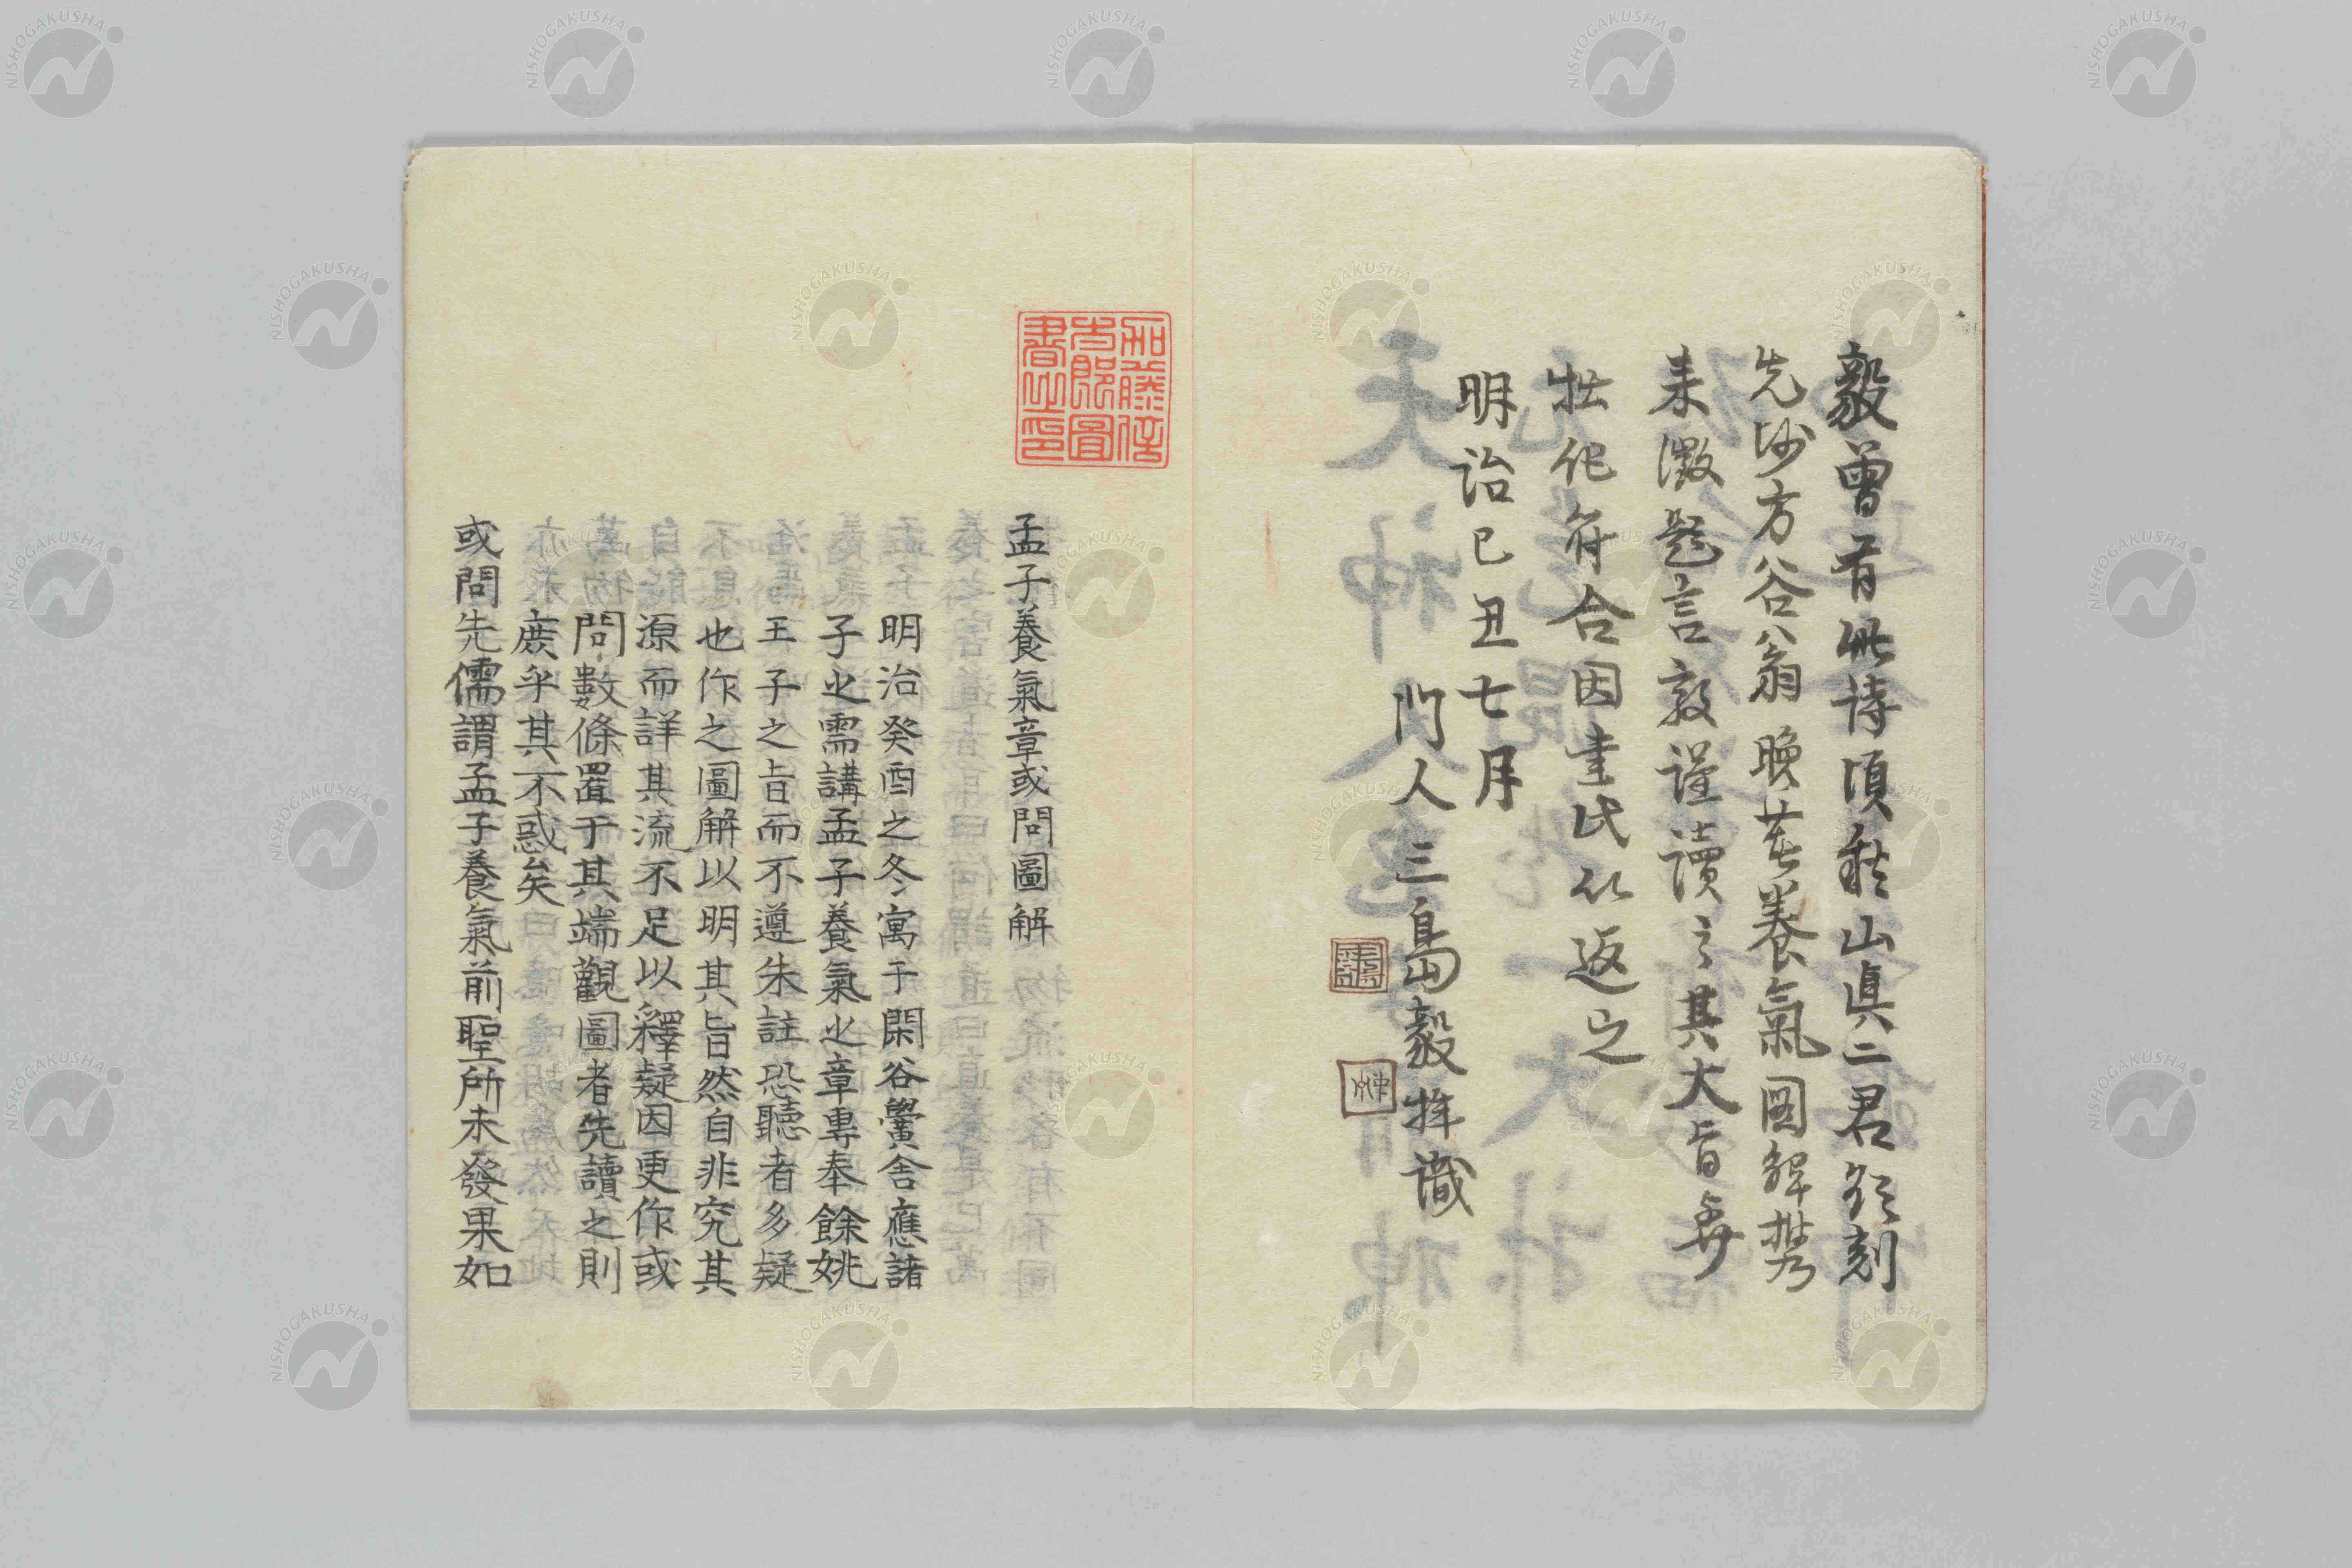 毅曽有此詩頃秋山眞二君欲刻
先師方谷翁晩葚養氣圖解携
来徴題言毅謹讀之其大旨與
拙作符合因書此以返之
明治己丑七月
門人三島毅拜識
加藤信太郎圖書之印
孟子養氣章或問圖解
明治癸酉之冬寓于閑谷黌舍應諸
子之需講孟子養氣之章專奉餘姚
王子之旨而不遵朱註恐聽者多疑
也作之圖解以明其旨然自非究其
源而詳其流不足以釋疑因更作或
問數條置于其端觀圖者先讀之則
庶乎其不惑矣
或問先儒謂孟子養氣前聖所未發果如
NISHOGAKUSHA